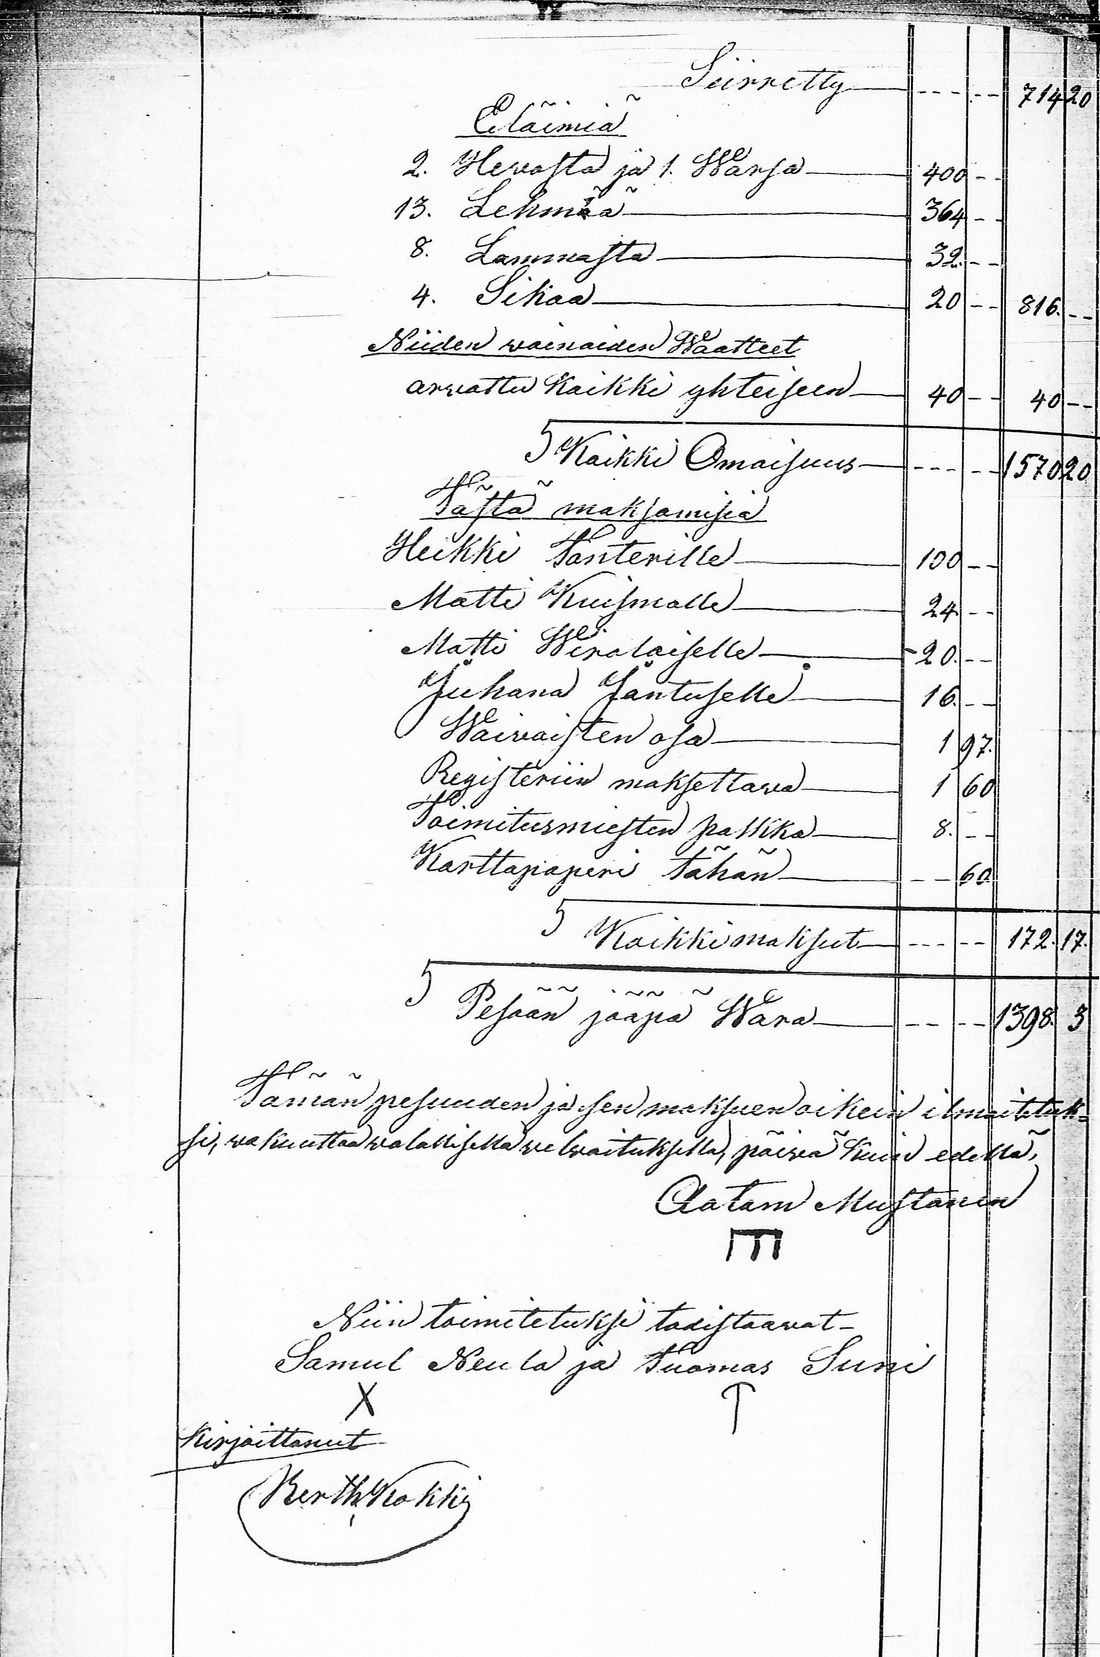 Siirretty - - - - - 714 20
Eläimiä
2. Hevosta ja 1. Warsa 400 - -
13. Lehmää 364 - -
8. Lammasta 32. - -
4. Sikaa 20 - - 816. - -
Niiden wainaiden Waatteet
arwattu Kaikki yhteiseen 40 - - 40 - -
Kaikki Omaisuus - - - - - - 1570 20
Tästä maksamisia
Heikki Tanterille 100 - -
Matti Kuismalle 24. - -
Matti Wirolaiselle 20. - -
Juhana Jantuselle 16. - -
Waiwaisten osa 1 97.
Registeriin maksettawa 1 60
Toimitusmiesten palkka 8. - -
Karttapaperi tähän - - 60.
Kaikki maksut - - - - - 172. 17.
Pesään jääpä Wara - - - - 1398. 3
Tämän pesuuden ja sen maksuen oikein ilmoitetuk=
si, wakuuttaa walallisella welwoituksella, päiwä kuin edellä,
Aatam Mustonen
Niin toimitetuksi todistaawat
Samul Neula ja Tuomas Suni
X
Kirjoittanut
Berth Kokki